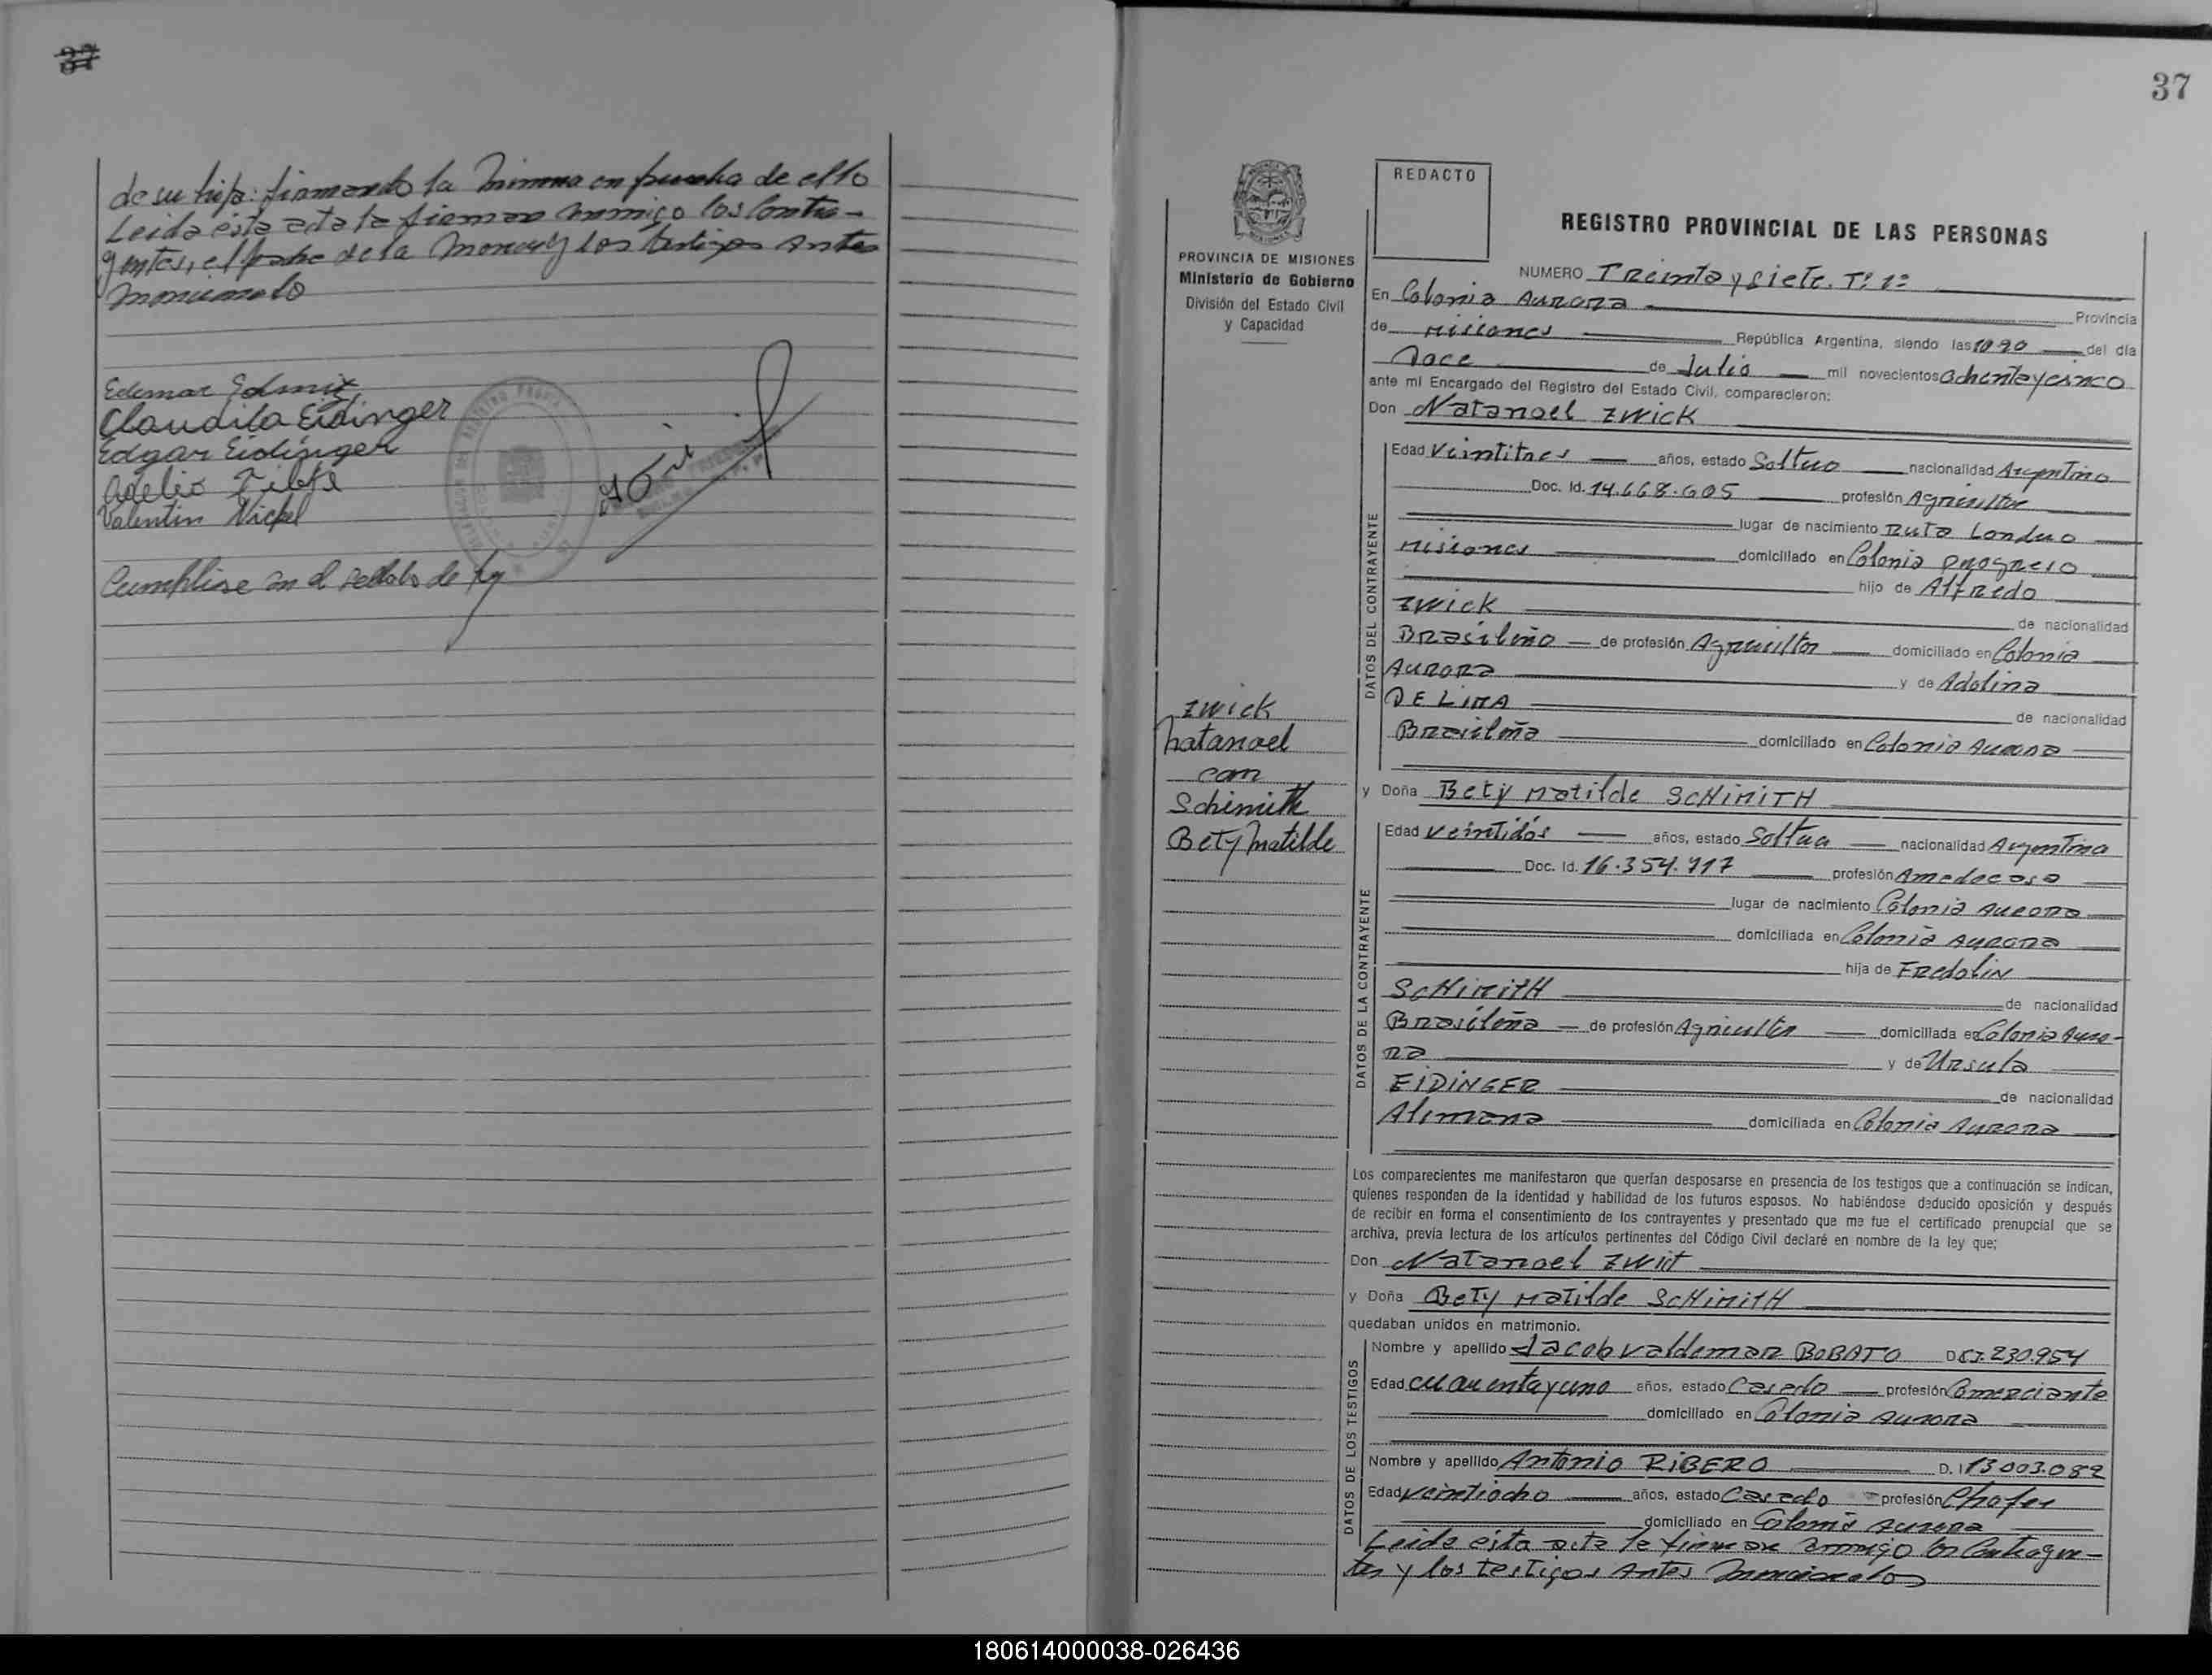 37
de su hija: firmando la misma en prueba de ello
Leida esta acta la firman conmigo los Contra-
yentes, el padre de la menor y los testigos antes
Edemar Schmitz
Claudila Eidinger
Edgar Eidinger
Valentin Nickel
en el sellado de ley
37
REDACTO
PROVINCIA DE MISIONES
Ministerio de Gobierno
División del Estado Civil
y Capacidad
REGISTRO PROVINCIAL DE LAS PERSONAS
NUMERO Treinta y siete. Tº 1º
En Colonia Aurora Provincia
de Misiones República Argentina, siendo las 10 20 del día
Doce de Julio mil novecientos ochenta y cinco
ante mí Encargado del Registro del Estado Civil, comparecieron:
Don Natanael ZWICK
DATOS DEL CONTRAYENTE
Edad Veintitres años, estado Soltero nacionalidad Argentino
Doc. Id. 14.668.605 profesión Agricultor
lugar de nacimiento Ruta Londero
Misiones domiciliado en Colonia Progreso
hijo de Alfredo
ZWICK de nacionalidad
Brasileño de profesión Agricultor domiciliado en Colonia
Aurora y de Adelina
DE LIMA de nacionalidad
Brasileña domiciliado en Colonia Aurora
ZWICK
Natanael
con
Schimith
Bety Matilde
y Doña Bety Matilde SCHIMITH
DATOS DE LA CONTRAYENTE
Edad Veintidós años, estado Soltera nacionalidad Argentina
Doc. Id. 16.354.717 profesión Ama de casa
lugar de nacimiento Colonia Aurora
domiciliada en Colonia Aurora
hija de Fredolin
SCHIMITH de nacionalidad
Brasileña de profesión Agricultor domiciliada en Colonia Auro-
ra y de Ursula
EIDINGER de nacionalidad
Alemana domiciliada en Colonia Aurora
Los comparecientes me manifestaron que querían desposarse en presencia de los testigos que a continuación se indican,
quienes responden de la identidad y habilidad de los futuros esposos. No habiéndose deducido oposición y después
de recibir en forma el consentimiento de los contrayentes y presentado que me fue el certificado prenupcial que se
archiva, previa lectura de los artículos pertinentes del Código Civil declaré en nombre de la ley que;
Don Natanael Zwit
y Doña Bety Matilde SCHIMITH
quedaban unidos en matrimonio.
DATOS DE LOS TESTIGOS
Nombre y apellido Jacob Valdemar BOBATO 230.954
Edad cuarenta y uno años, estado Casado profesión Comerciante
domiciliado en Colonia Aurora
Nombre y apellido Antonio RIBERO D. I 13.003.082
Edad veintiocho años, estado Casado profesión Chofer
domiciliado en Colonia Aurora
Leida esta acta la firman conmigo los Contrayen-
tes y los testigos antes mencionados
180614000038-026436